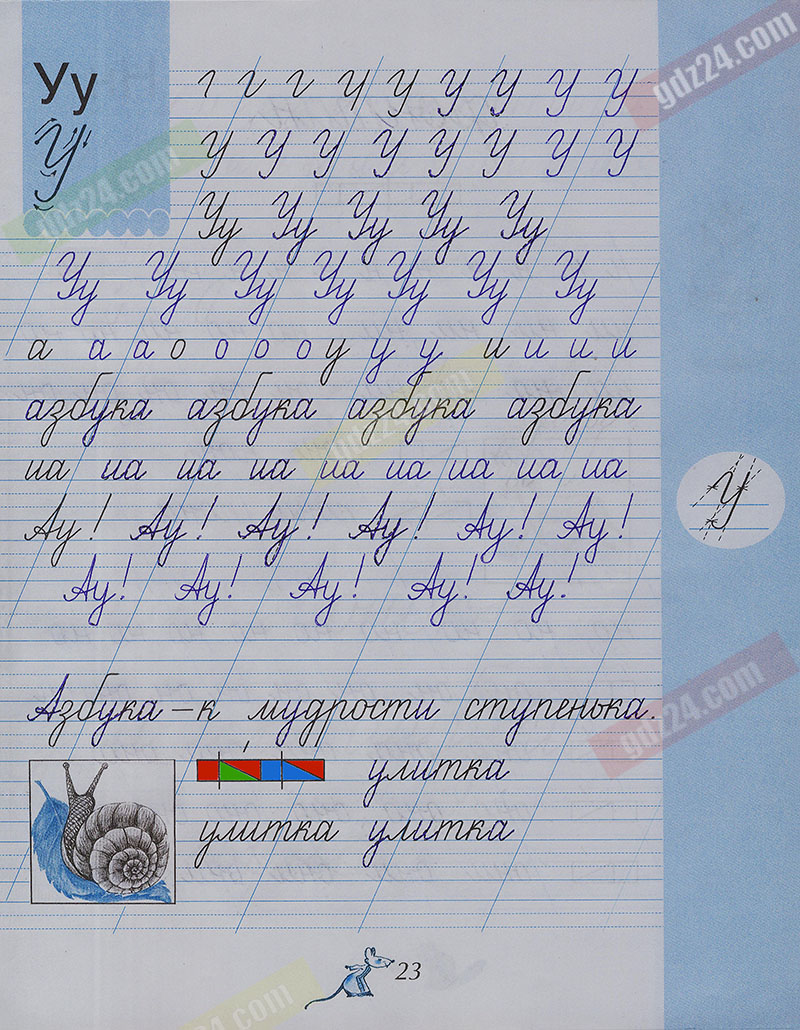 Уу
У
г г г ч у у у у у
у у у у у у у у
Уу Уу Уу Уу Уу
Уу Уу Уу Уу Уу Уу Уу
а а а о о о о у у у и и и и
азбука азбука азбука азбука
иа иа иа иа иа иа иа иа иа
у
Ау! Ау! Ау! Ау! Ау! Ау!
Ау! Ау! Ау! Ау! Ау!
Азбука – к мудрости ступенька.
улитка
улитка улитка
23
gdz24.com
gdz24.com
gdz24.com
gdz24.com